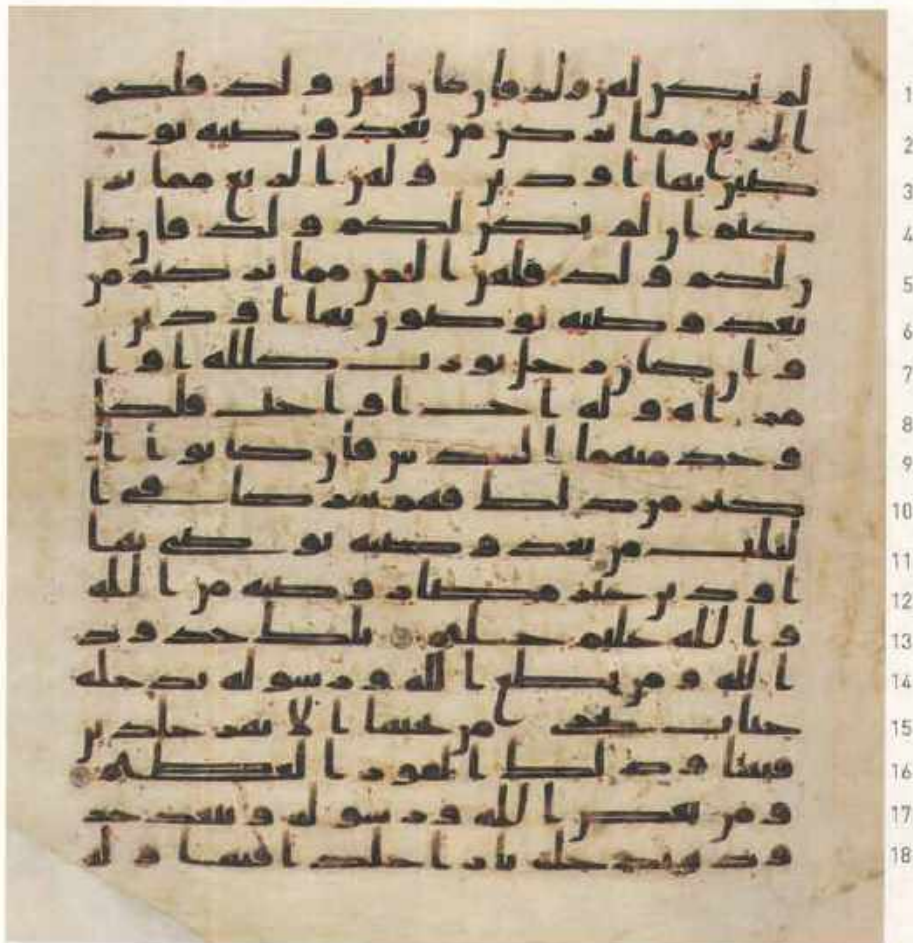 لم يكن لهن ولد فان كان لهن ولد فلكم 1
الربع مما تركن من بعد وصيه يو 2
صين بها او دين ولهن الربع مما تر 3
كتم ان لم يكن لكم ولد فان كا 4
ن لكم ولد فلهن الثمن مما تركتم من 5
بعد وصيه توصون بها او دين 6
وان كان رجل يورث كلله او ا 7
مراه وله اخ او اخت فلكل 8
وحد منهما السدس فان كانوا ا 9
كثر من ذلك فهم شركا في ا 10
لثلث من بعد وصيه يوصى بها 11
او دين غير مضار وصيه من الله 12
والله عليم حليم تلك حدود 13
الله ومن يطع الله ورسوله يدخله 14
جنات تجري من تحتها الانهر خلدين 15
فيها وذلك الفوز العظيم 16
ومن يعص الله ورسوله ويتعد حد 17
وده يدخله نارا خلدا فيها وله 18